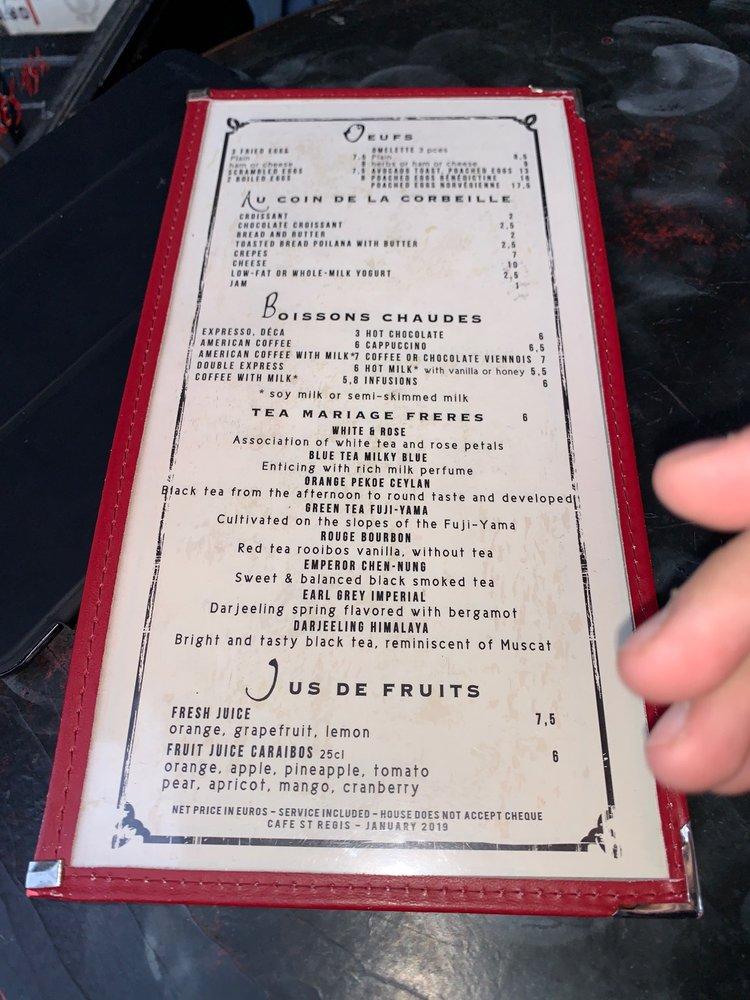 OEUFS
3 FRIED EGGS
Plain 7,5
ham or cheese 8
SCRAMBLED EGGS 7,5
2 BOILED EGGS
OMELETTE 3 pces
Plain 8,5
herbs or ham or cheese 9
AVOCADO TOAST, POACHED EGGS 13
POACHED EGGS BÉNÉDICTINE 16
POACHED EGGS NORVÉGIENNE 17,5
AU COIN DE LA CORBEILLE
CROISSANT 2
CHOCOLATE CROISSANT 2,5
BREAD AND BUTTER 2
TOASTED BREAD POILANA WITH BUTTER 2,5
CREPES 7
CHEESE 10
LOW-FAT OR WHOLE-MILK YOGURT 2,5
JAM 1
BOISSONS CHAUDES
EXPRESSO, DÉCA 3 HOT CHOCOLATE 6
AMERICAN COFFEE 6 CAPPUCCINO 6,5
AMERICAN COFFEE WITH MILK*7 COFFEE OR CHOCOLATE VIENNOIS 7
DOUBLE EXPRESS 6 HOT MILK* with vanilla or honey 5,5
COFFEE WITH MILK* 5,8 INFUSIONS 6
* soy milk or semi-skimmed milk
TEA MARIAGE FRERES 6
WHITE & ROSE
Association of white tea and rose petals
BLUE TEA MILKY BLUE
Enticing with rich milk perfume
ORANGE PEKOE CEYLAN
Black tea from the afternoon to round taste and developed
GREEN TEA FUJI-YAMA
Cultivated on the slopes of the Fuji-Yama
ROUGE BOURBON
Red tea rooibos vanilla, without tea
EMPEROR CHEN-NUNG
Sweet & balanced black smoked tea
EARL GREY IMPERIAL
Darjeeling spring flavored with bergamot
DARJEELING HIMALAYA
Bright and tasty black tea, reminiscent of Muscat
JUS DE FRUITS
FRESH JUICE 7,5
orange, grapefruit, lemon
FRUIT JUICE CARAIBOS 25cl 6
orange, apple, pineapple, tomato
pear, apricot, mango, cranberry
NET PRICE IN EUROS – SERVICE INCLUDED – HOUSE DOES NOT ACCEPT CHEQUE
CAFE ST REGIS – JANUARY 2019